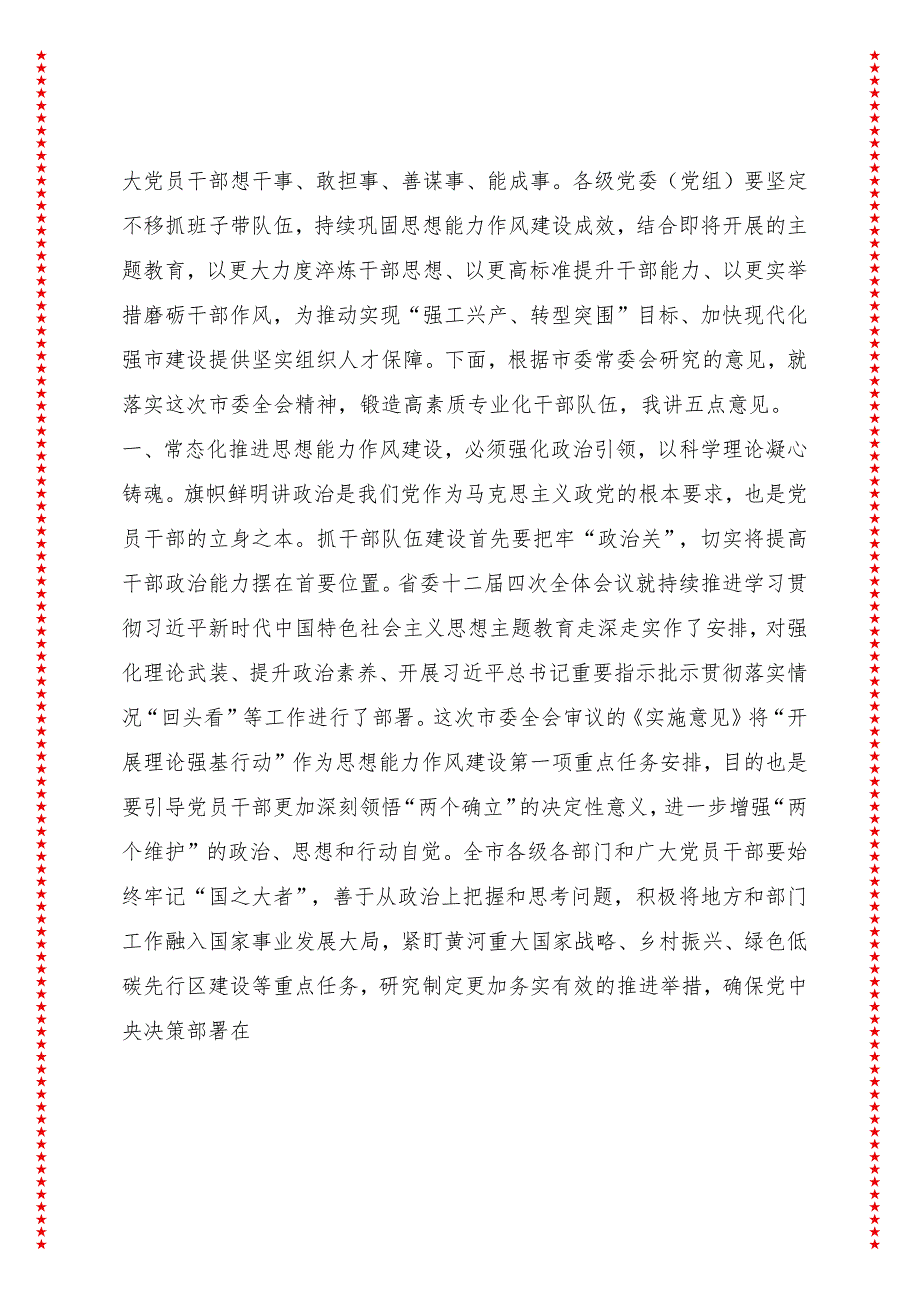 大党员干部想干事、敢担事、善谋事、能成事。各级党委（党组）要坚定
不移抓班子带队伍，持续巩固思想能力作风建设成效，结合即将开展的主
题教育，以更大力度淬炼干部思想、以更高标准提升干部能力、以更实举
措磨砺干部作风，为推动实现“强工兴产、转型突围”目标、加快现代化
强市建设提供坚实组织人才保障。下面，根据市委常委会研究的意见，就
落实这次市委全会精神，锻造高素质专业化干部队伍，我讲五点意见。
一、常态化推进思想能力作风建设，必须强化政治引领，以科学理论凝心
铸魂。旗帜鲜明讲政治是我们党作为马克思主义政党的根本要求，也是党
员干部的立身之本。抓干部队伍建设首先要把牢“政治关”，切实将提高
干部政治能力摆在首要位置。省委十二届四次全体会议就持续推进学习贯
彻习近平新时代中国特色社会主义思想主题教育走深走实作了安排，对强
化理论武装、提升政治素养、开展习近平总书记重要指示批示贯彻落实情
况“回头看”等工作进行了部署。这次市委全会审议的《实施意见》将“开
展理论强基行动”作为思想能力作风建设第一项重点任务安排，目的也是
要引导党员干部更加深刻领悟“两个确立”的决定性意义，进一步增强“两
个维护”的政治、思想和行动自觉。全市各级各部门和广大党员干部要始
终牢记“国之大者”，善于从政治上把握和思考问题，积极将地方和部门
工作融入国家事业发展大局，紧盯黄河重大国家战略、乡村振兴、绿色低
碳先行区建设等重点任务，研究制定更加务实有效的推进举措，确保党中
央决策部署在